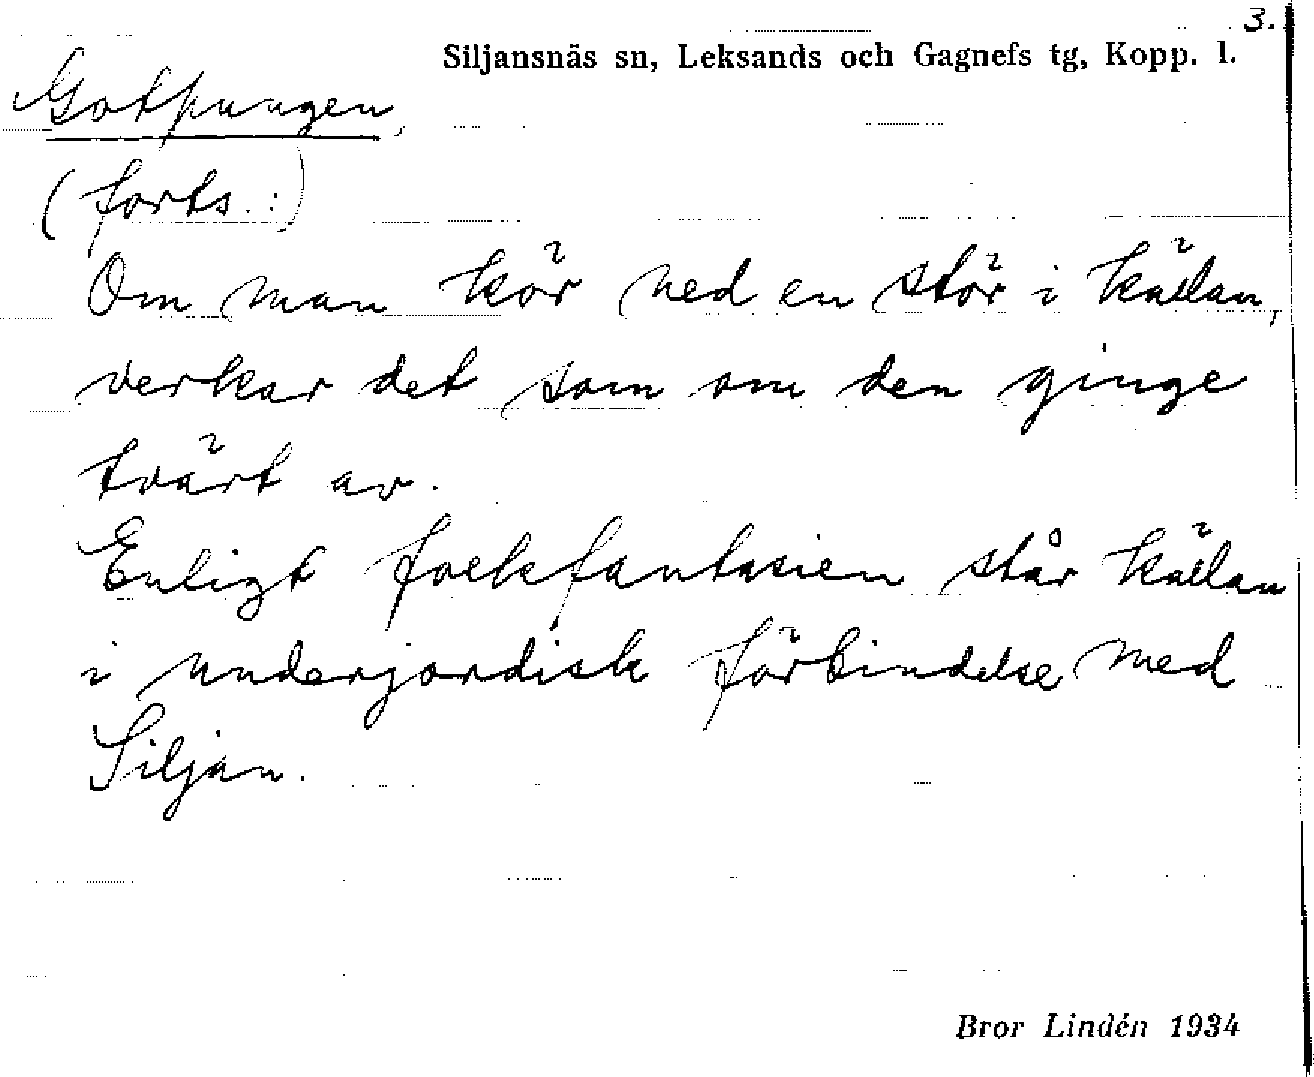 3.
Siljansnäs sn, Leksands och Gagnefs tg, Kopp. l.
Gotpungen,
(forts.:)
Om man kör ned en stör i källan,
verkar det som om den ginge
tvärt av.
Enligt folkfantasien står källan
i underjordisk förbindelse med
Siljan.
Bror Lindén 1934